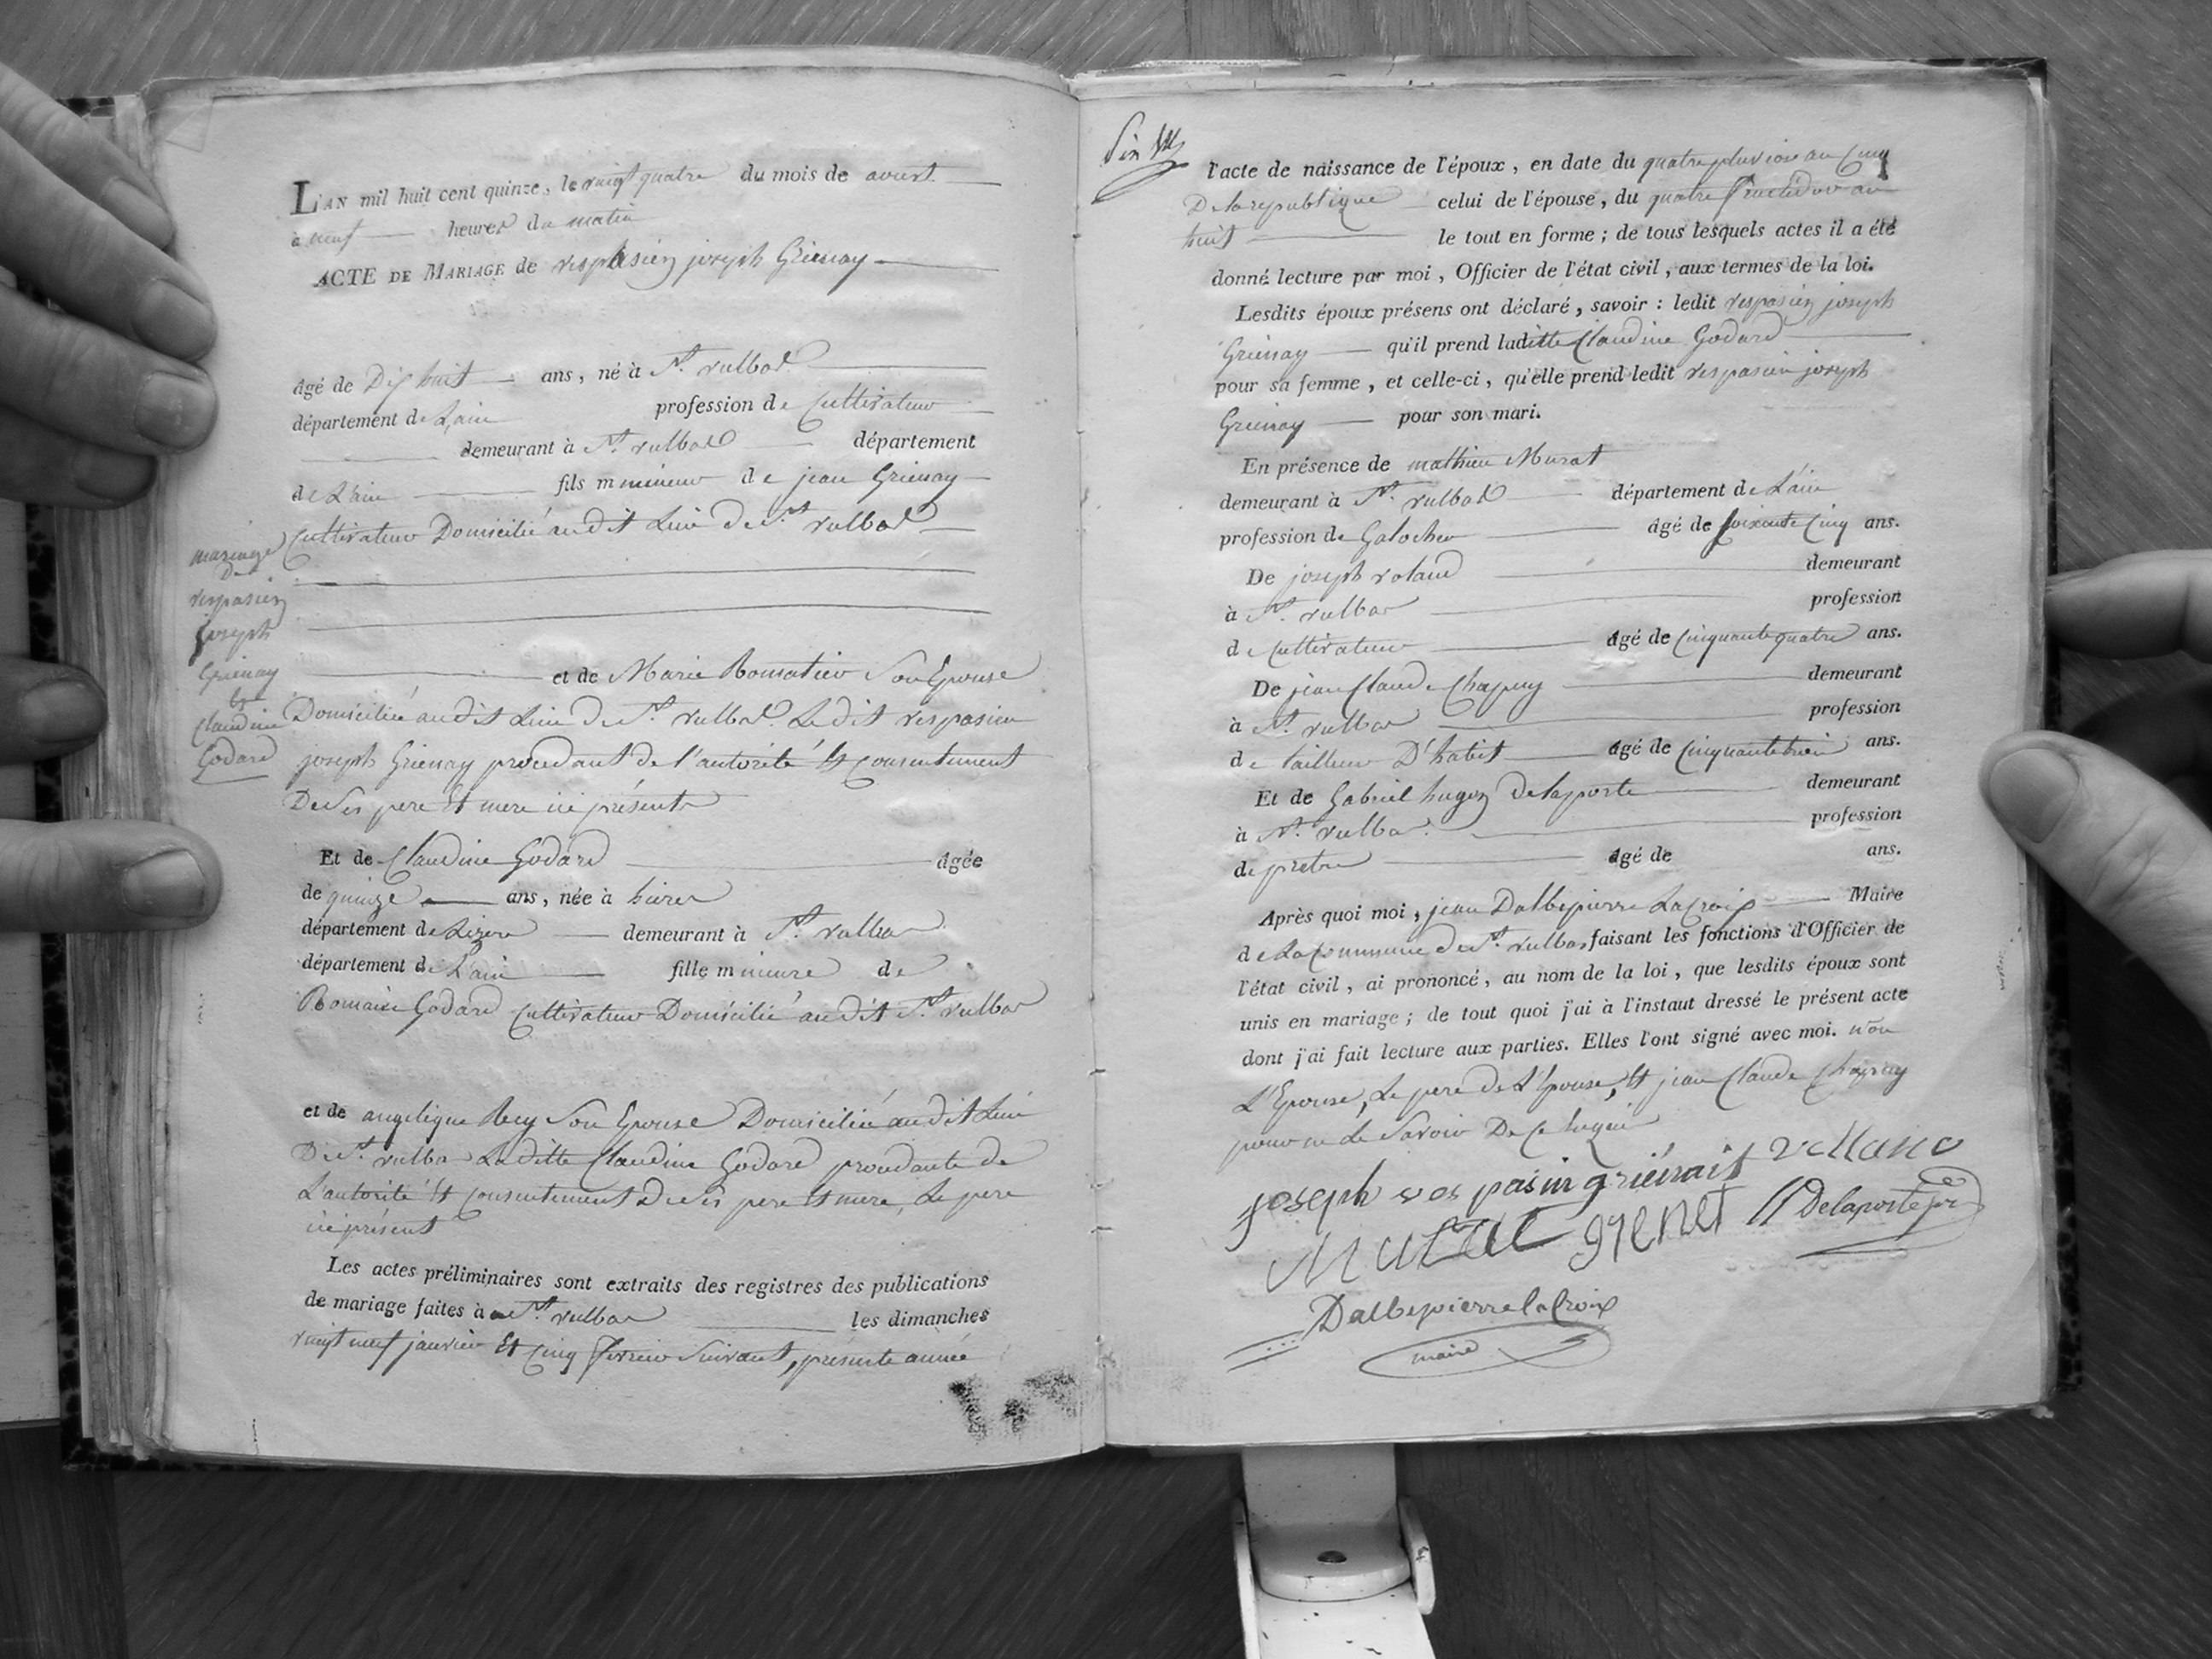 L'AN mil huit cent quinze, le vingt quatre du mois de avust
à neuf heures du matin
ACTE DE MARIAGE de vespasien joseph Griennay
âgé de Dix huit ans, né à St. vulbas
département de L'ain profession de Cultivateur
demeurant à St. vulbas département
de L'ain fils mmineur de jean Griennay
Cultivateur Domicilié audit Lieu de St. vulbas
mariage
De
vespasien
joseph
Griennay
Et
Claudine
Godard
et de Marie Bonnatier Son Epouse
Domiciliée audit Lieu de St. vulbas. Le dit vespasien
joseph Griennay procedant de l'autorité Et consentement
De Ses pere Et mere ici présents
Et de Claudine Godard agée
de quinze ans, née à hières
département de Lizere demeurant à St. vulbas
département de L'ain fille mineure de
Romain Godard Cultivateur Domicilié audit St. vulbas
et de angelique Rey Son Epouse Domiciliée audit Lieu
De St. vulbas Laditte Claudine Godard procedante de
L'autorité Et Consentement De Ses pere Et mere, Le pere
ici présent
Les actes préliminaires sont extraits des registres des publications
de mariage faites à St. vulbas les dimanches
vingt neuf janvier Et Cinq Fevrier Suivant, présente année
l'acte de naissance de l'époux, en date du quatre pluviose an Cinq
De la republique celui de l'épouse, du quatre fructidor an
huit le tout en forme ; de tous lesquels actes il a été
donné lecture par moi, Officier de l'état civil, aux termes de la loi.
Lesdits époux présens ont déclaré, savoir : ledit vespasien joseph
Griennay qu'il prend laditte Claudine Godard
pour sa femme, et celle-ci, qu'elle prend ledit vespasien joseph
Griennay pour son mari.
En présence de mathieu Murat
demeurant à St. vulbas département de L'ain
profession de Galocher âgé de soixante Cinq ans.
De joseph roland demeurant
à St. vulbas profession
de Cultivateur âgé de Cinquante quatre ans.
De jean Claude Chapuy demeurant
à St. vulbas profession
de tailleur D'habit âgé de Cinquante trois ans.
Et de Gabriel hugon Delaporte demeurant
à St. vulbas profession
de pretre âgé de ans.
Après quoi moi, jean Dalbepierre Lacroix Maire
de La Commune de St. vulbas faisant les fonctions d'Officier de
l'état civil, ai prononcé, au nom de la loi, que lesdits époux sont
unis en mariage ; de tout quoi j'ai à l'instaut dressé le présent acte
dont j'ai fait lecture aux parties. Elles l'ont signé avec moi. non
L'Epouse, Le pere de L'Epouse, Et jean Claude Chapuy
pour ne le Savoir De Ce Enquis
joseph ves pasin griénait rollano
Murat grenet Delaporte
Dalbepierre lacroix
maire